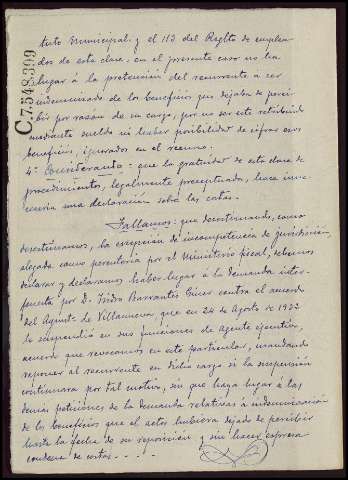 C.7.548.399
tuto municipal y el 113 del Reglto de emplea-
dos de esta clase, en el presente caso no ha
lugar á la pretensión del recurrente a ser
indemnizado de los beneficios que dejaba de perci-
bir por razón de su cargo, por no ser este retribuido
mediante sueldo ni haber posibilidad de cifrar esos
beneficios, ignorados en el recurso.
4º Considerando: que la gratuidad de esta clase de
procedimientos, legalmente preceptuada, hace inne-
cesaria una declaración sobre las costas.
Fallamos: que desestimando, como
desestimamos, la excepción de incompetencia de jurisdicción
alegada como perentoria por el Ministerio fiscal, debemos
declarar y declaramos haber lugar á la demanda inter-
puesta por D. Isidro Barrantes contra el acuerdo
del Ayunto de Villanueva, que en 24 de Agosto de 1932
le suspendió en sus funciones de Agente ejecutivo,
acuerdo que revocamos en este particular, mandando
reponer al recurrente en dicho cargo si la suspensión
continuara por tal motivo, sin que haya lugar á las
demás peticiones de la demanda relativas á indemnización
de los beneficios que el actor hubiera dejado de percibir
hasta la fecha de su reposición y sin hacer expresa
condena de costas. - - -